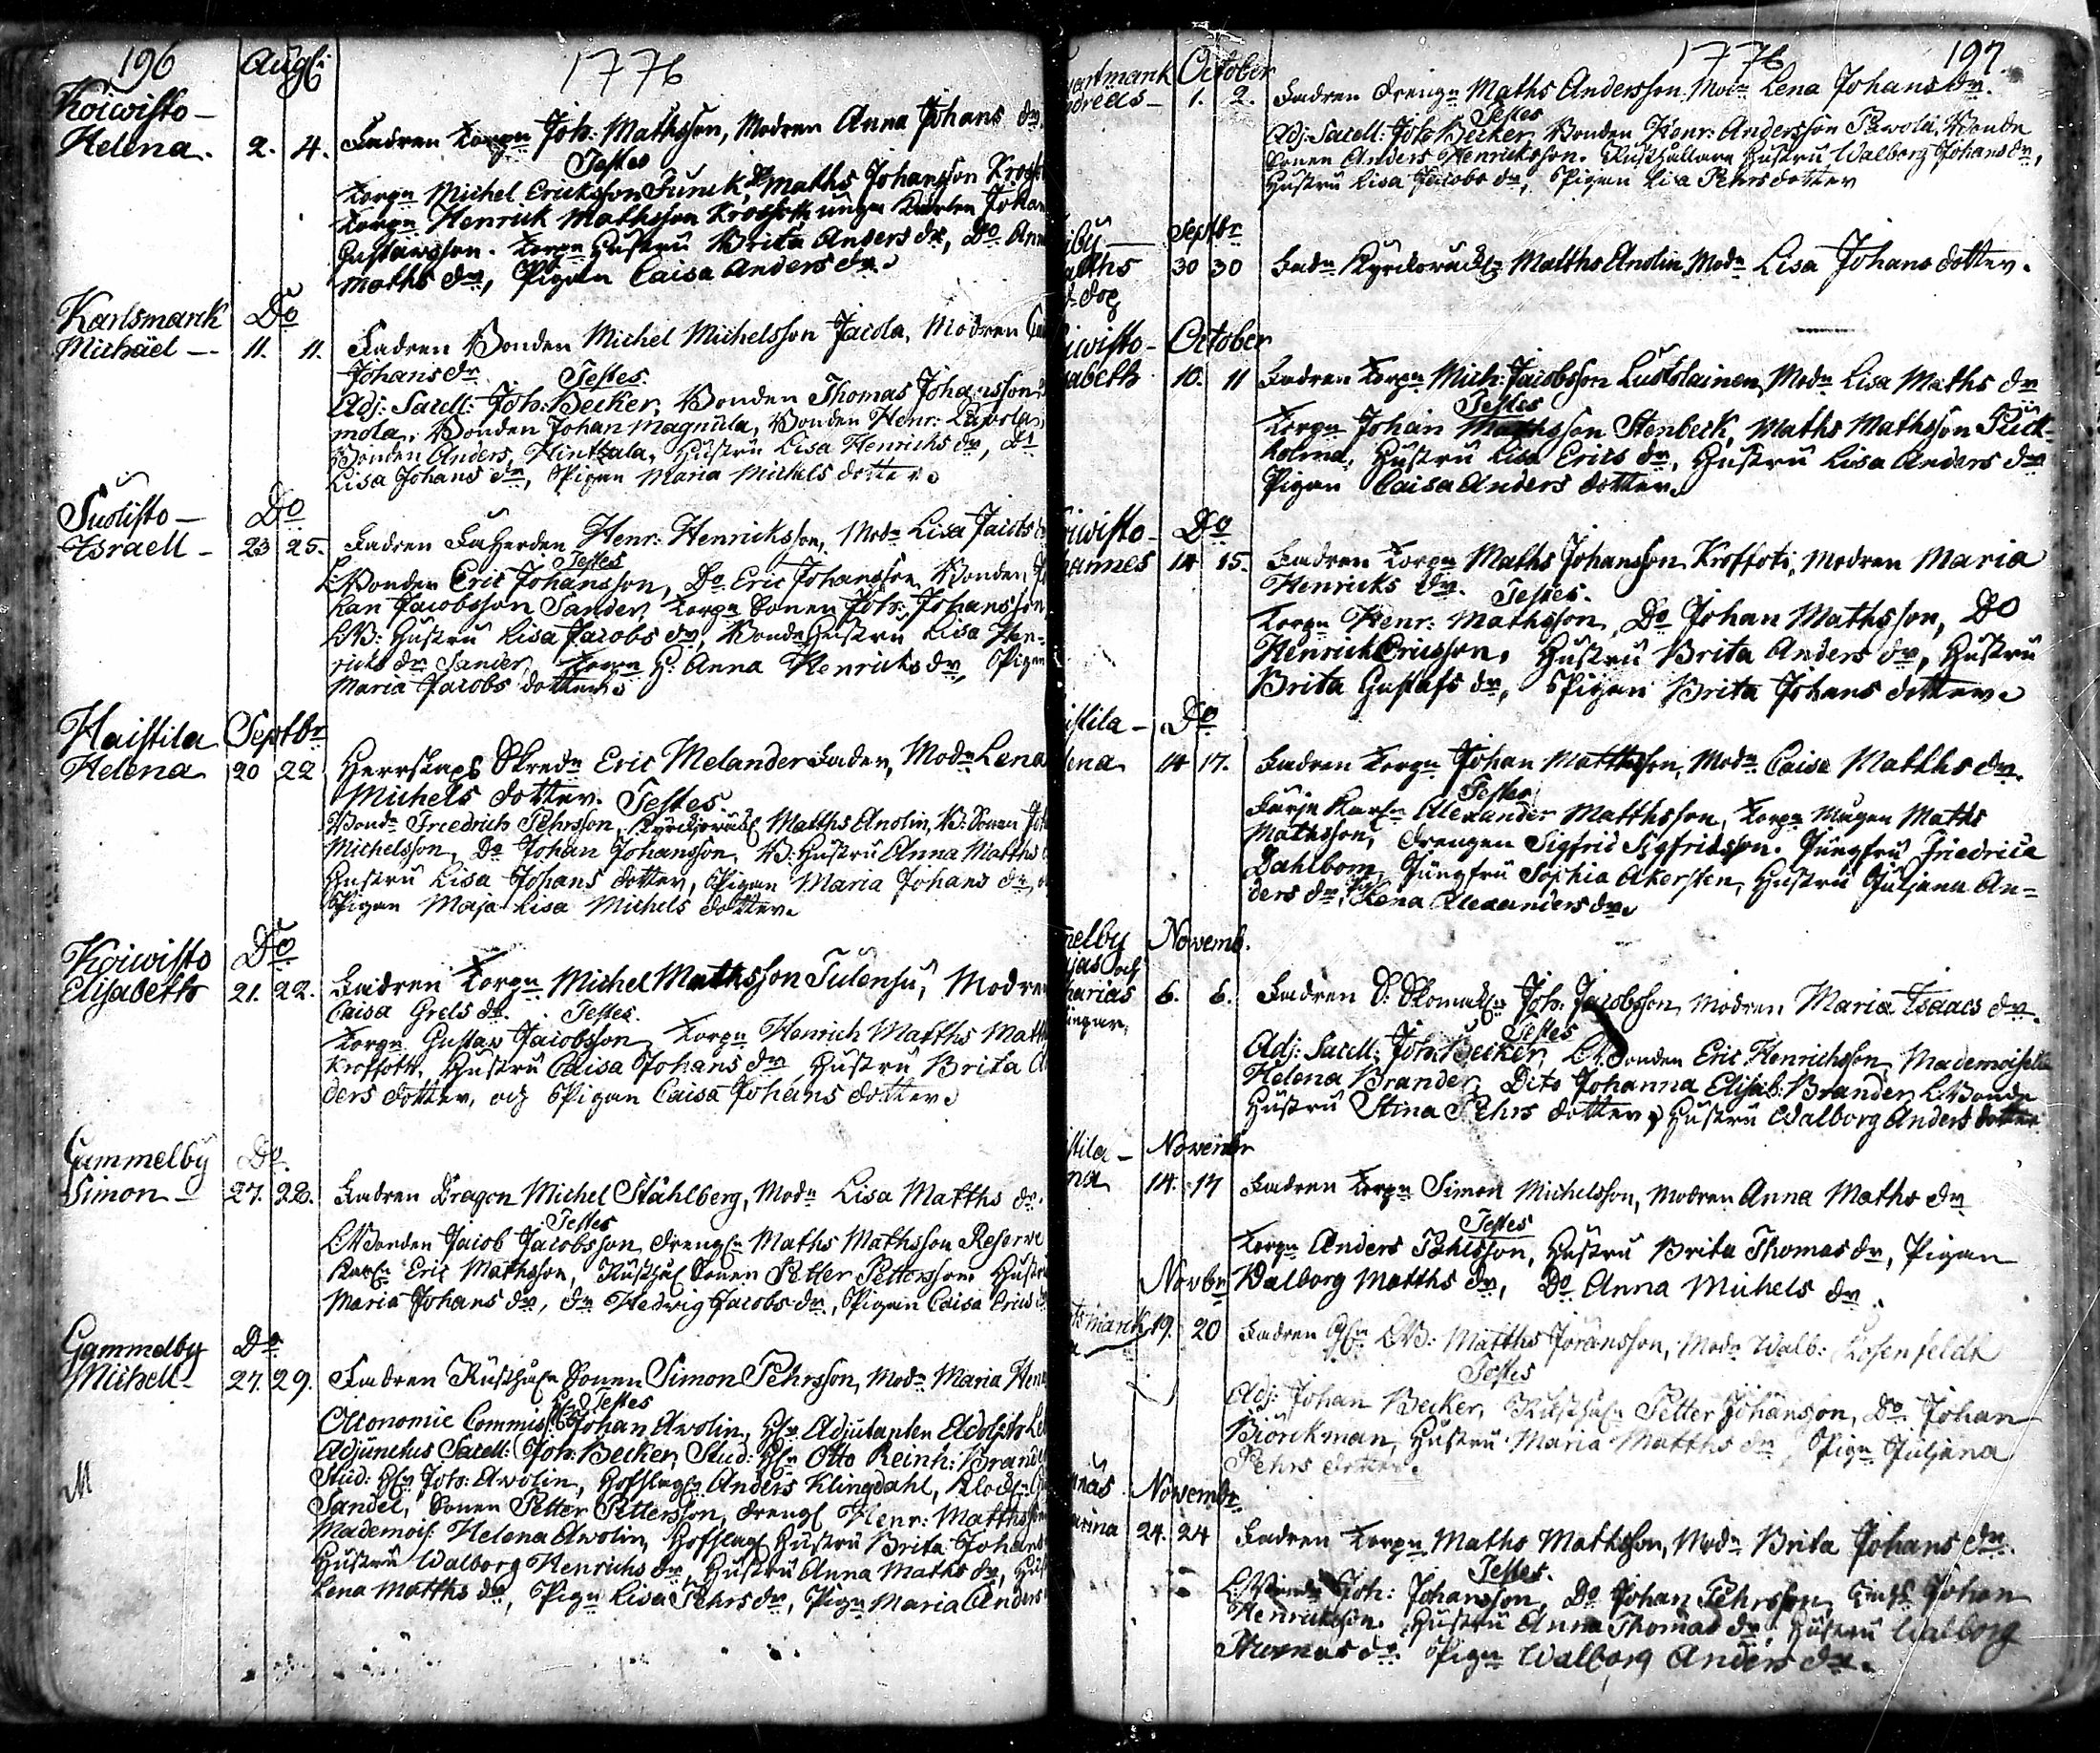 196 Augst: 1776
Koiwisto —
Helena. 2. 4. Fadren Torpn Joh: Mathsson, Modren Anna Johans dr.
Testes
Torpn Michel Ericksson Maths Johansson
Torpn Henrick Mathsson Johan
Gustawsson. Torpn Hustru Brita Anders dr, Do Anna
Maths dr, Pigan Caisa Anders dr.
Karlsmarck Do
Michäel — 11. 11. Fadren Bonden Michel Michelsson Jacola, Modren
Johans dr. Testes.
Adj: Sacell: Joh: Becker, Bonden Thomas Johansson
mola, Bonden Johan Magnula, Bonden Henr:
Bonden Anders Hintzala, Hustru Lisa Henrichs dr, Do
Lisa Johans dr, Pigan Maria Michels dotter.
Suolisto — Do
Israell — 23 25. Fadren Henr: Henricksson, Modn Lisa Jacobs
Testes
Bonden Eric Johansson, Do Eric Johansson Bonden Jo
han Jacobsson Sander, Torpn Sonen Joh: Johansson
Hustru Lisa Jacobs dr, Bonde Hustru Lisa Hen-
ricks dr Sander, Torpn H: Anna Henricks dr, Pigan
Maria Jacobs dotter.
Haistila Septbr
Helena 20 22 Herrskaps Skredn Eric Melander Fader, Modn Lena
Michels dotter. Testes.
Bondn Friedrich Pehrsson, Matths Anolin, B: Sonen
Michelsson, Do Johan Johansson, B: Hustru Anna Matths
Hustru Lisa Johans dotter, Pigan Maria Johans dr,
Pigan Maja Lisa Michels dotter.
Koiwisto Do
Elisabeth 21. 22. Fadren Torpn Michel Mathsson Tulensu, Modren
Caisa Grels dr. Testes.
Torpn Gustav Jacobsson, Torpn Henrich Matths
Hustru Caisa Johans dr Hustru Brita
ders dotter, och Pigan Caisa Johans dotter.
Gammelby Do.
Simon — 27. 28. Fadren Dragon Michel Ståhlberg, Modn Lisa Matths dr.
Testes
Bonden Jacob Jacobsson, drengn Maths Mathsson Reserve
Karln Eric Mathsson, Rusthål Sonen Petter Pettersson. Hustru
Maria Johans dr, Hedvig Jacobs dr, Pigan Caisa Erics
Gammelby Do
Michell — 27. 29. Fadren Rusthåln Sonen Simon Pehrsson, Modn Maria
Testes
Oeconomiæ Commiss: Johan Awolin, Hr Adjutanten Adolph
Adjunctus Sacell: Joh: Becker, Stud: Hr Otto Reinh: Brander
Stud: Hr Joh: Awolin, Hofslagn Anders Klingdahl,
Sandel, Sonen Petter Pettersson, Drengl Henr: Matthsson
Mademois: Helena Awolin, Hofslag Hustru Brita Johans
Hustru Walborg Henrichs dr, Hustru Anna Maths dr, Hust
Lena Matths dr, Pign Lisa Pehrs dr, Pign Maria Anders
M
1776 197.
artmark October
dreas — 1. 2. Fadren Drengn Maths Andersson, Modn Lena Johans dr.
Testes
Adj: Sacell: Joh: Becker, Bonden Henr: Andersson Pawola, Bonde
Sonen Anders Henricksson. Rusthållare Hustru Walborg Johans dr,
Hustru Lisa Jacobs dr, Pigan Lisa Pehrs dotter
by — Septbr
aths 30 30 Fadn Matths Anolin, Modn Lisa Johans dotter.
d: döp
iwisto — October
abeth 10. 11 Fadren Torpn Mich: Jacobsson Luskolainen, Modn Lisa Maths dr
Testes
Torpn Johan Mathsson Stenbeck, Maths Mathsson Puck-
kolma, Hustru Lisa Erics dr, Hustru Lisa Anders dr
Pigan Caisa Anders dotter.
iwisto — Do
hannes 14 15. Fadren Torpn Maths Johansson Kroffoti, Modren Maria
Henricks dr. Testes.
Torpn Henr: Mathsson, Do Johan Mathsson, Do
Henrich Ericsson, Hustru Brita Anders dr, Hustru
Brita Gustafs dr, Pigan Brita Johans dotter.
istila — Do
lena 14 17. Fadren Torpn Johan Matthsson, Modn Caisa Matths dr.
Testes
Färje Karln Alexander Matthsson, Torpn Mågen Maths
Mathsson, Drengen Sigfrid Sigfridsson. Jungfru Friedrica
Dahlbom, Jungfru Sophia Akersten, Hustru Juljana An=
ders dr, Pig: Lena Alexanders dr.
melby Novemb.
ias och
harias 6. 6. Fadren S: Skomakn Joh: Jacobsson, Modren Maria Isaacs dr.
Testes
Adj: Sacell: Joh: Becker, Bonden Eric Henrichsson, Mademoiselle
Helena Brander, Dito Johanna Elisab: Brander, Bonde
Hustru Stina Pehrs dotter, Hustru Walborg Anders dotter
stila — Novembr
na 14. 17 Fadren Torpn Simon Michelsson, Modren Anna Maths dr
Testes
Torpn Anders Hustru Brita Thomas dr, Pigan
Walborg Matths dr, Do Anna Michels dr.
Novbr
marck 19. 20 Fadren Matths Joransson, Modn Walb: Rosenfeldt
Testes
Adj: Johan Becker, Rusthåln Petter Johansson, Do Johan
Biörckman, Hustru Maria Matths dr, Pign Juljana
Pehrs dotter.
näs Novembr
arina 24. 24 Fadren Torpn Maths Mathsson, Modn Brita Johans dr.
Testes.
Joh: Johansson, Do Johan Pehrsson, Johan
Henricksson. Hustru Anna Thomas dr, Hustru Walborg
Thomas dr Pign Walborg Anders dr.